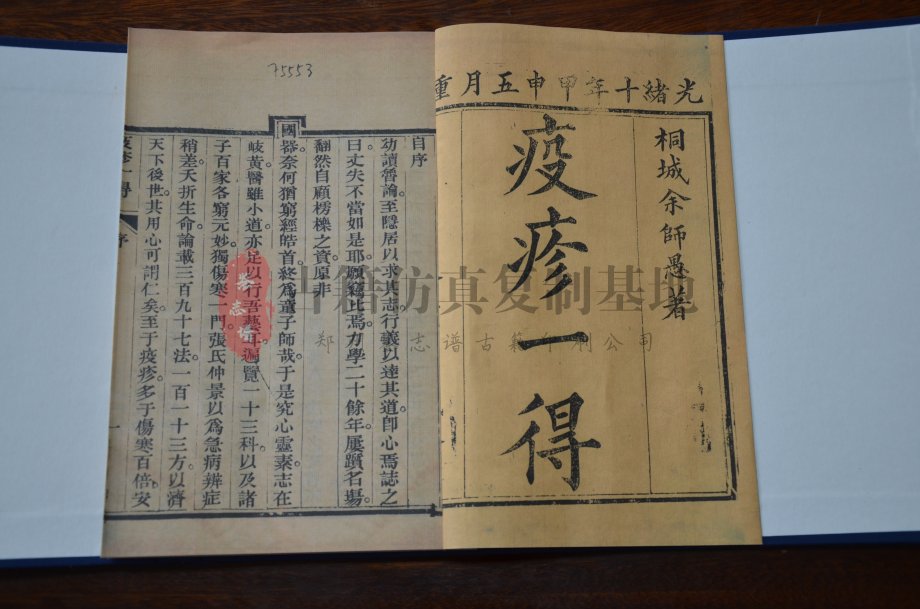 光緒十年甲申五月重
桐城余師愚著
疫疹一得
75553
自序
幼讀魯論至隱居以求其志行義以達其道卽心焉誌之
曰丈夫不當如是耶願竊比焉力學二十餘年屢躓名場
翻然自顧樗櫟之資原非
國器奈何猶窮經皓首終爲童子師哉于是究心靈素志在
岐黃醫雖小道亦足以行吾藝耳遍覽一十三科以及諸
子百家各窮元妙獨傷寒一門張氏仲景以爲急病辨症
稍差夭折生命論載三百九十七法一百一十三方以濟
天下後世其用心可謂仁矣至于疫疹多于傷寒百倍安
疫疹一得
序
一
古籍仿真复制基地
志譜古籍 公司